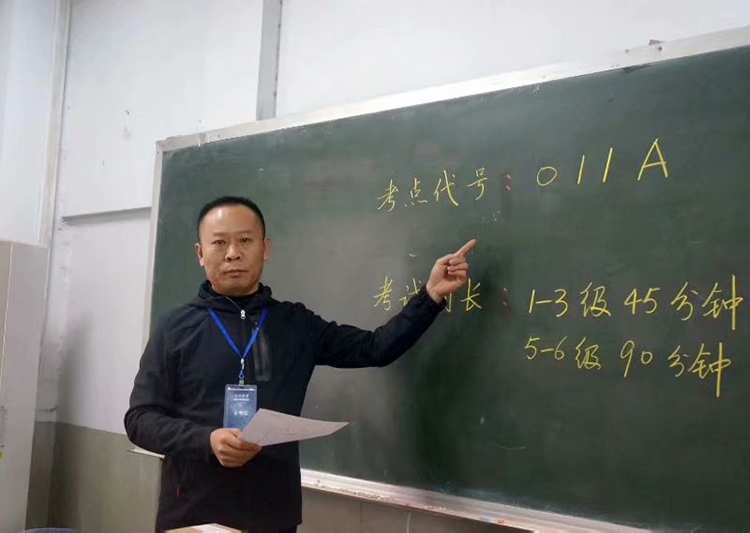 考点代号：011A
考试时长：1-3级 45分钟
5-6级 90分钟